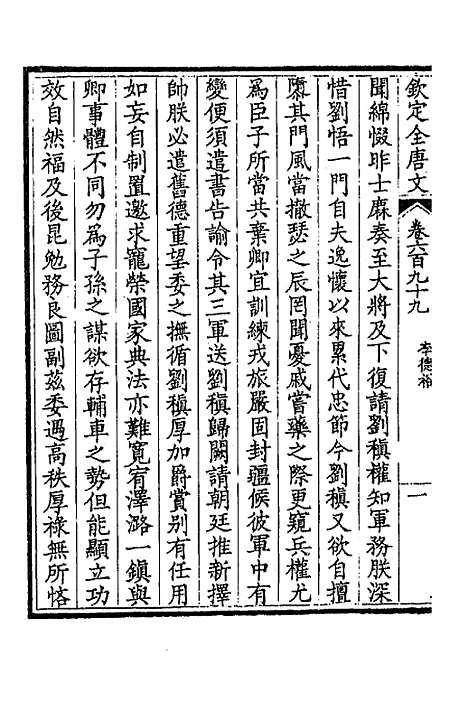 欽定全唐文 卷六百九十九 李德裕 一
聞綿惙昨士廉奏至大將及下復請劉稹權知軍務朕深
惜劉悟一門自夫逸懷以來累代忠節今劉稹又欲自擅
隳其門風當撤瑟之辰罔聞憂戚嘗藥之際更窺兵權尤
爲臣子所當共棄卿宜訓練戎旅嚴固封疆候彼軍中有
變便須遣書告諭令其三軍送劉稹歸闕請朝廷推新擇
帥朕必遣舊德重望委之撫循劉稹厚加爵賞别有任用
如妄自制置邀求寵榮國家典法亦難寬宥澤潞一鎮與
卿事體不同勿爲子孫之謀欲存輔車之勢但能顯立功
效自然福及後昆勉務良圖副茲委遇高秩厚祿無所恡